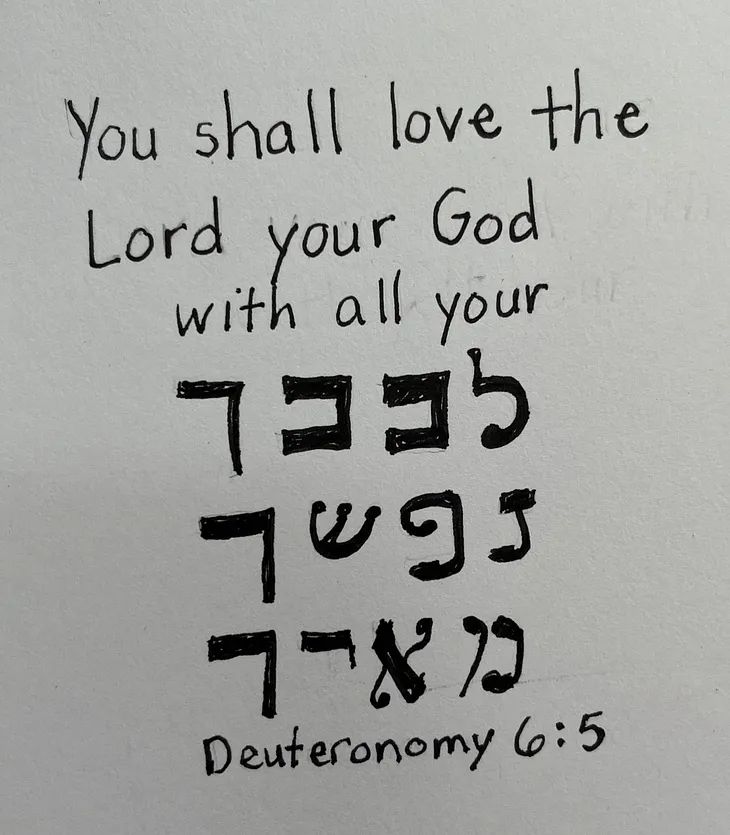 You shall love the
Lord your God
with all your
לבבך
נפשך
מאדך
Deuteronomy 6:5